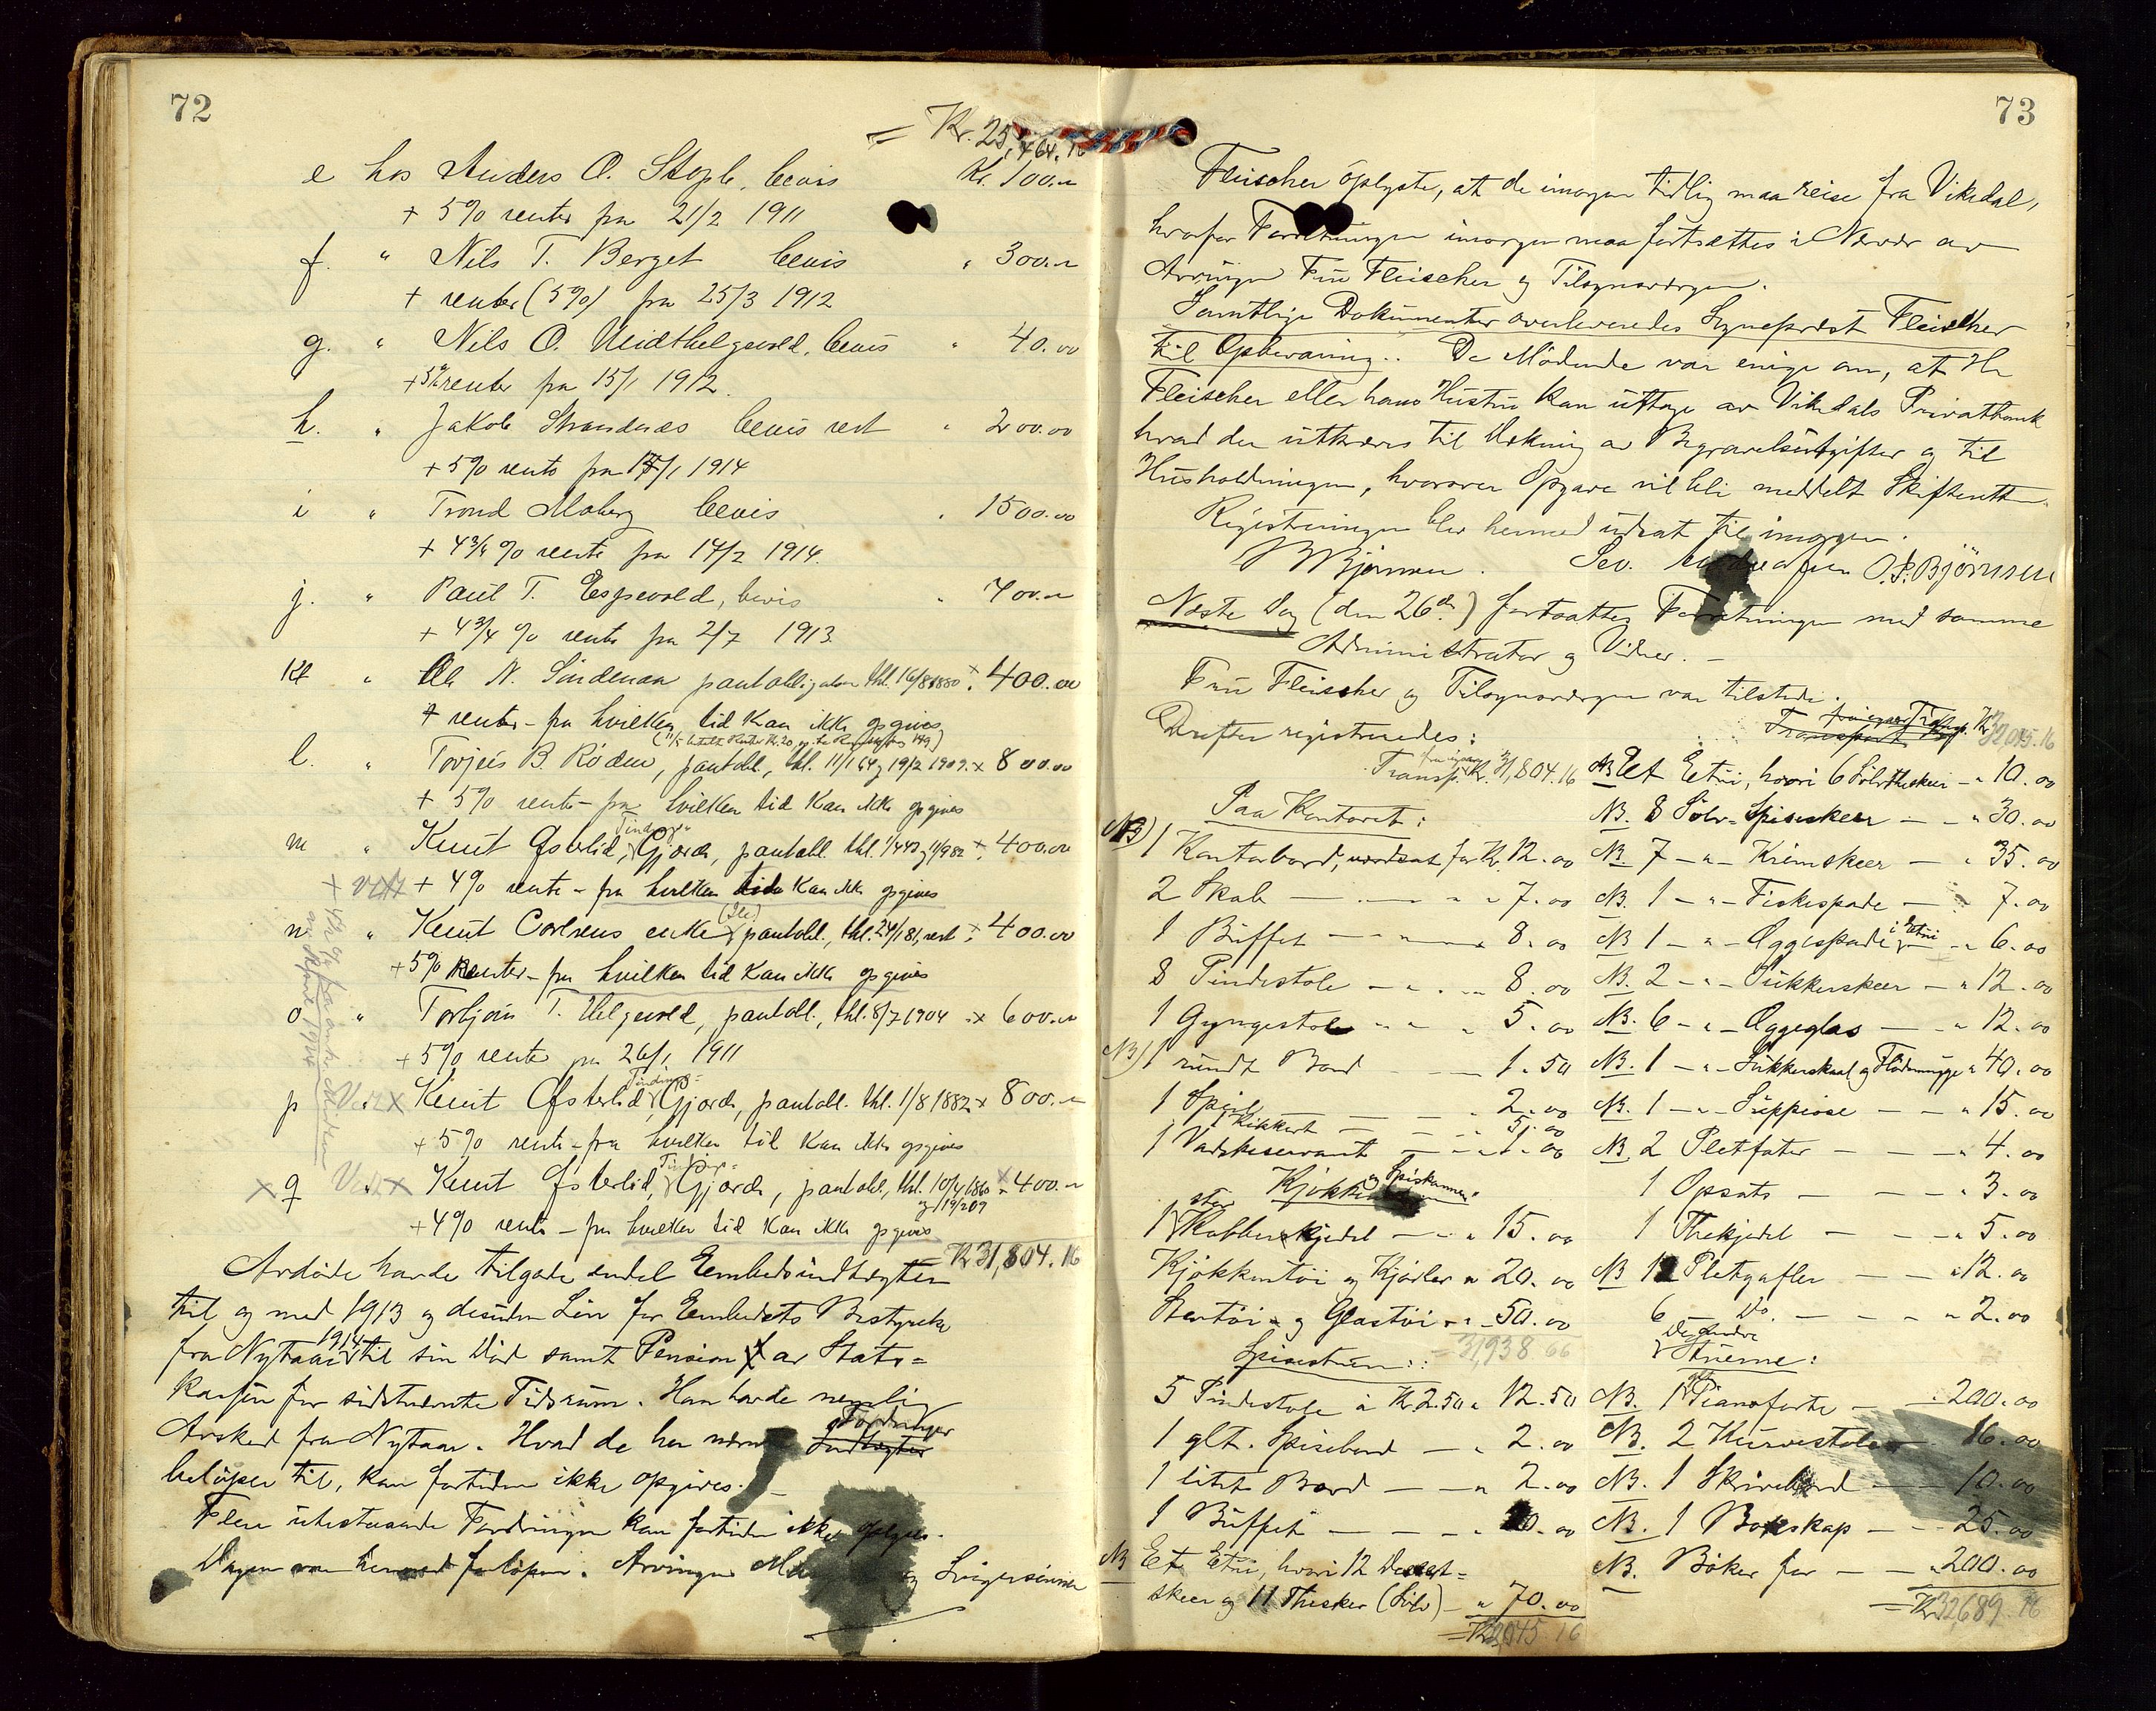 72
= Kr. 25,464.16
e hos Anders O. Stople, bevis Kr. 100.00
+ 5% renter fra 21/2 1911
f. " Nils T. Berget bevis " 300.00
+ renter (5%) fra 25/3 1912
g. " Nils O. Meidthelgevold, bevis " 40.00
+ 5% renter fra 15/1 1912.
h. " Jakob Strandenæs bevis rest " 200.00
+ 5% rente fra 1/1 1914
i " Trond Moberg bevis " 1500.00
+ 4 3/4 % rente fra 14/2 1914.
j. " Paul T. Espevold, bevis " 700.00
+ 4 3/4 % rente fra 2/7 1913
k " Ole N. Sindenaa pantobligation thl. 16/8 1880 x " 400.00
+ renter - fra hvilken tid kan ikke opgives
(11/5 betalt Renter Kr. 20,
l. " Torjeis B. Röden, pantobl., thl. 11/1 64 og 19/2 1909. x 800.00
+ 5% rente - fra hvilken tid kan ikke opgives
m " Knut Østerlid, Tindings Gjorde, pantobl. thl. x " 400.00
+ 4% rente - fra hvilken tid kan ikke opgives
n " Knut Carlsens enke (Ile) pantobl., thl. 24/1 81, rest " 400.00
+ 5% Renter - fra hvilken tid kan ikke opgives
o " Torbjörn T. Helgevold, pantobl., thl. 8/7 1904 " x 600.00
+ 5% rente fra 26/1 1911
p " x Knut Østerlid Tindings Gjorde, pantobl. thl. 1/8 1882 x 800.00
+ 5% rente - fra hvilken tid kan ikke opgives
x q " x Knut Østerlid, Tindings Gjorde, pantobl., thl. 10/4 1860 og 19/2 09 x " 400.00
+ 4% rente - fra hvilken tid kan ikke opgives
= Kr 31,804.16
Avdöde havde tilgode endel Embedsindtægter
til og med 1913 og desuden Lön for Embedets Bestyrelse
fra Nytaar 1914 til sin Död samt Pension av Stats=
kassen for sidstnævnte Tidsrum. Han havde nemlig
Avsked fra Nytaar. Hvad de her nævnte Indtægter Fordringer
belöper til, kan fortiden ikke opgives. -
Flere utestaaende Fordringer kan fortiden ikke oplyses.
Dagen var hermed forlöpen. Arvingen og Svigersönnen
73
Fleischer oplyste, at de imorgen tidlig maa reise fra Vikedal,
hvorfor Forretningen imorgen maa fortsættes i Nærvær av
Arvingen Fru Fleischer og Tilsynsværgen.
Samtlige Dokumenter overleveredes Sogneprest Fleischer
til Opbevaring. De Mödende var enige om, at Hr
Fleischer eller hans Hustru kan uttage av Vikedals Privatbank
hvad der utkræves til Dækning av Begravelsesutgifter og til
Husholdningen, hvorover Opgave vil bli meddelt Skifteretten.
Registreringen blev hermed udsat til imorgen.
B Björnsen. Sev. Andreassen O. P. Björnsen
Næste Dag (den 26de) fortsattes Forretningen med samme
Administrator og Vidner. -
Fru Fleischer og Tilsynsværgen var tilstede.
Derefter registreredes:
Transp. Kr. 31,804.16
Paa Kontoret:
NB) 1 Kontorbord, vurderet for Kr. 12.00
2 Skab — — " 7.00
1 Buffet — — 8.00
8 Pindestole — " 8.00
1 Gyngestol " " " 5.00
NB) 1 rundt Bord — 1.50
1 Speil — — " 2.00
1 Kikkert — — " 5.00
1 Vadskeservant — " 1.00
Kjökken og Spiskammer
1 stor Kobberkjedel — " 15.00
Kjökkentöi og Kjörler " 20.00
Stentöi og Glastöi " " 50.00
= 31,938.66
Spisestuen:
5 Pindestole à Kr. 2.50 " 12.50
1 glt. Spisebord — " 2.00
1 litet Bord — — " 2.00
1 Buffet — — — " 20.00
NB Et Etui, hvori 12 Dessert=
skeer og 11 Theskeer (Sölv) — " 70.00
= Kr 32,045.16
Transport Kr 32,045.16
NB Et Etui, hvori 6 Sölvtheskeer — " 10.00
NB. 8 Sölv-Spiseskeer — — " 30.00
NB. 7 — " — Krimskeer — " 35.00
NB. 1 — " — Fiskespade — " 7.00
NB 1 — " — Æggespade i Etui — " 6.00
NB. 2 — " — Sukkerskeer — " 12.00
NB. 6 — " — Æggeglas — — " 12.00
NB. 1 — " — Sukkerskaal og Flödemugge " 40.00
NB. 1 — " — Suppeöse — — " 15.00
NB 2 Pletfater — — — " 4.00
1 Opsats — — — " 3.00
1 Thekjedel — — — " 5.00
NB 12 Pletgafler — — " 12.00
6 — Do. — — — " 2.00
De andre Stuerne:
NB. 1 Pianoforte — — 200.00
NB. 2 Kurvestole — 16.00
NB. 1 Skrivebord — — 10.00
NB. 1 Bokskap — — 25.00
NB. Böker for — — " 200.00
= Kr 32,689.16